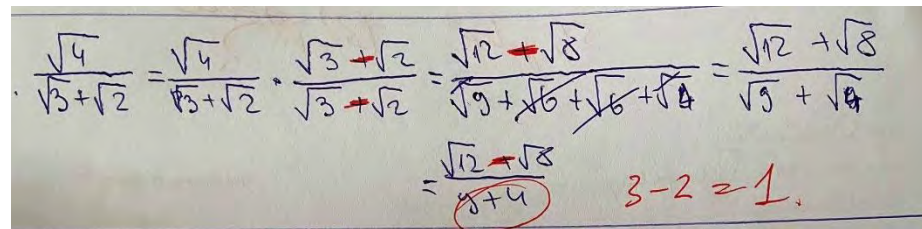 √4/(√3+√2) = √4/(√3+√2) · (√3-√2)/(√3-√2) = (√12-√8)/(√9+√6+√6+√4) = (√12+√8)/(√9+√4)
= (√12-√8)/(9+4) 3-2=1.